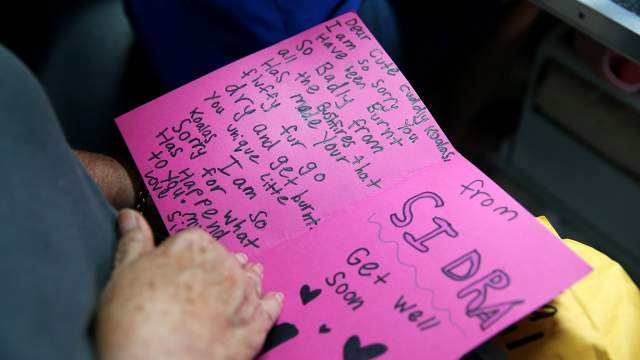 Dear Cute Cuddly Koalas,
I am so sorry you
Have been Burnt
So Badly from
all the Bushfires that
Has made your
fluffy fur go
dry and get
you unique little burnt.
Koalas I am so
Sorry for what
Has Happend
to you.
Love
from
SIDRA
Get well
Soon